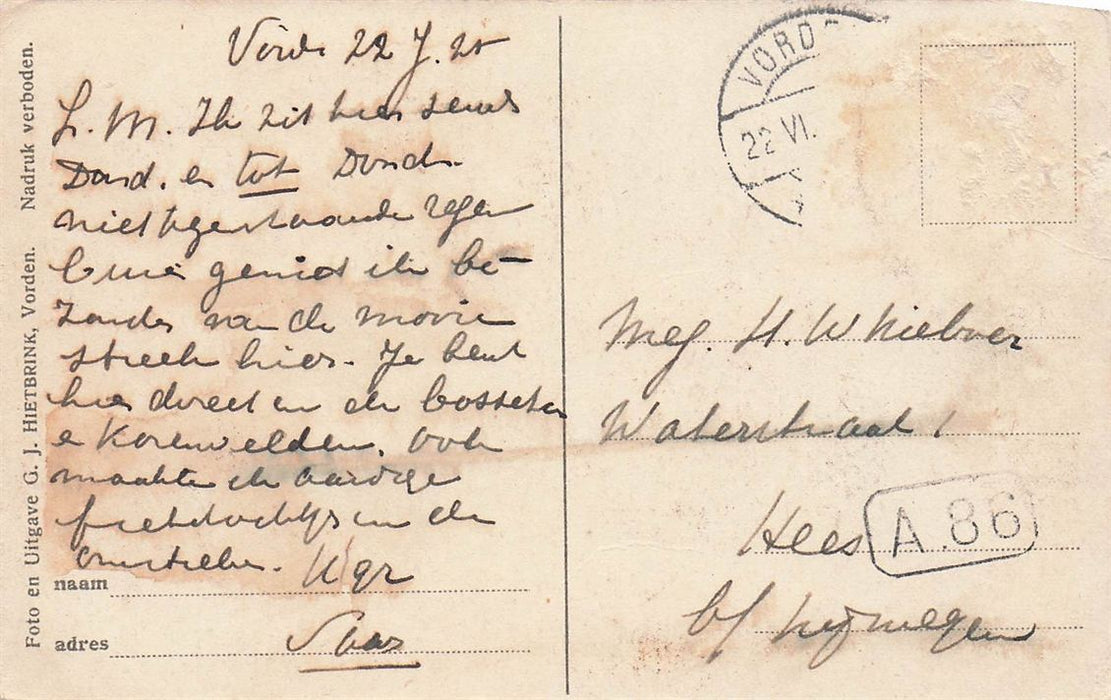 Foto en Uitgave G. J. HIETBRINK, Vorden. Nadruk verboden.
22 J.
L. M. Ik zit hier sends
Dond. en tot Dond.
niettegenstaande regen
geniet ik bij-
zonder van de mooie
streek hier. Je bent
hier direct in de bosschen
en Korenvelden. Ook
maakte ik aardige
fietstochtjes in de
omstreken.
naam
adres
VORD
22 VI.
Mej. H. W
Waterstraat 1
Hees
A.86
b/ Nijmegen